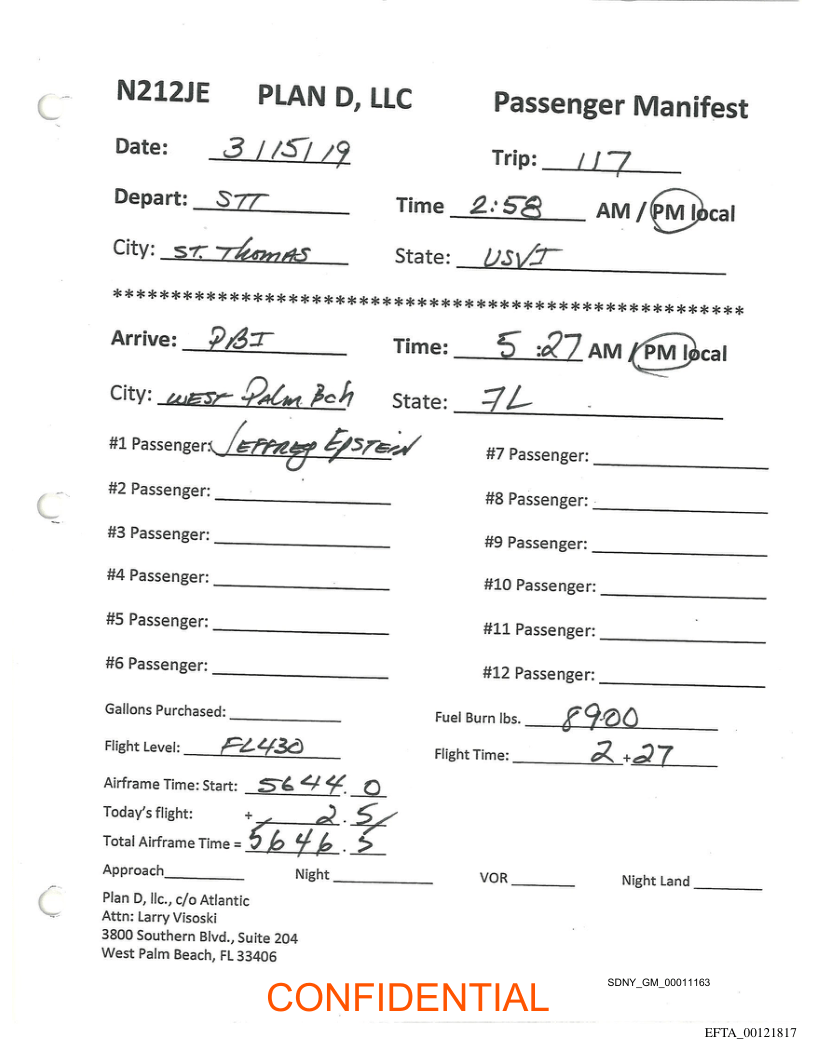 N212JE PLAN D, LLC Passenger Manifest
Date: 3/15/19 Trip: 117
Depart: STT Time 2:58 AM / PM local
City: ST. THOMAS State: USVI
******************************************************
Arrive: PBI Time: 5:27 AM / PM local
City: WEST PALM BCH State: FL
#1 Passenger: JEFFREY EPSTEIN #7 Passenger:
#2 Passenger: #8 Passenger:
#3 Passenger: #9 Passenger:
#4 Passenger: #10 Passenger:
#5 Passenger: #11 Passenger:
#6 Passenger: #12 Passenger:
Gallons Purchased: Fuel Burn lbs. 8900
Flight Level: FL430 Flight Time: 2 + 27
Airframe Time: Start: 5644.0
Today's flight: + 2.5
Total Airframe Time = 5646.5
Approach Night VOR Night Land
Plan D, llc., c/o Atlantic
Attn: Larry Visoski
3800 Southern Blvd., Suite 204
West Palm Beach, FL 33406
SDNY_GM_00011163
CONFIDENTIAL
EFTA_00121817